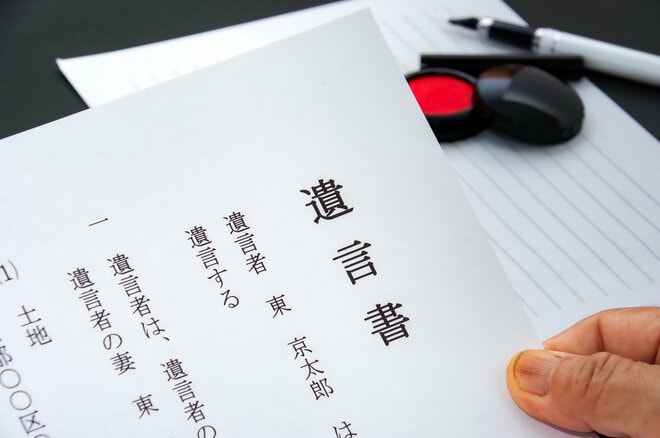 遺言書
遺言者 東 京太郎 は
遺言する
一 遺言者は、遺言者の
遺言者の妻 東
(1) 土地
都〇〇区〇